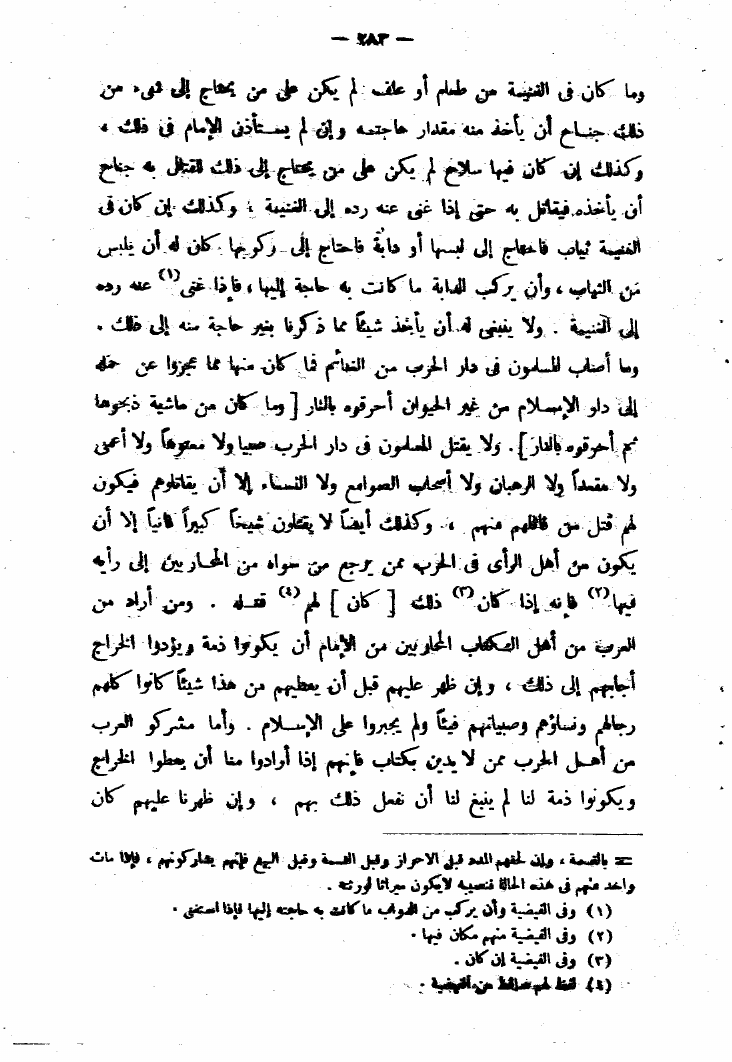 — ٢٨٣ —
وما كان فى الغنيمة من طعام أو علف لم يكن على من يحتاج إلى شىء من
ذلك جناح أن يأخذ منه مقدار حاجته وإن لم يستأذن الإمام فى ذلك ،
وكذلك إن كان فيها سلاح لم يكن على من يحتاج إلى ذلك للقتال به جناح
أن يأخذه فيقاتل به حتى إذا غنى عنه رده إلى الغنيمة ، وكذلك إن كان فى
الغنيمة ثياب فاحتاج إلى لبسها أو دابة فاحتاج إلى ركوبها كان له أن يلبس
من الثياب ، وأن يركب الدابة ما كانت به حاجة إليها ، فإذا غنى(١) عنه رده
إلى الغنيمة . ولا ينبغى له أن يأخذ شيئاً مما ذكرنا بغير حاجة منه إلى ذلك .
وما أصاب المسلمون فى دار الحرب من الغنائم فما كان منها مما عجزوا عن حمله
إلى دار الإسلام من غير الحيوان أحرقوه بالنار [ وما كان من ماشية ذبحوها
ثم أحرقوه بالنار ] . ولا يقتل المسلمون فى دار الحرب صبيا ولا معتوهاً ولا أعمى
ولا مقعداً ولا الرهبان ولا أصحاب الصوامع ولا النساء إلا أن يقاتلوهم فيكون
لهم قتل من قاتلهم منهم ، وكذلك أيضاً لا يقتلون شيخاً كبيراً فانياً إلا أن
يكون من أهل الرأى فى الحرب ممن يرجع من سواه من المحاربين إلى رأيه
فيها(٢) فإنه إذا كان(٣) ذلك [ كان ] لهم(٤) قتله . ومن أراد من
العرب من أهل الكتاب المحاربين من الإمام أن يكونوا ذمة ويؤدوا الخراج
أجابهم إلى ذلك ، وإن ظهر عليهم قبل أن يعطيهم من هذا شيئاً كانوا كلهم
رجالهم ونساؤهم وصبيانهم فيئاً ولم يجبروا على الإسلام . وأما مشركو العرب
من أهل الحرب ممن لا يدين بكتاب فإنهم إذا أرادوا منا أن يعطوا الخراج
ويكونوا ذمة لنا لم ينبغ لنا أن نفعل ذلك بهم ، وإن ظهرنا عليهم كان
= بالقسمة ، وإن لحقهم المدد قبل الاحراز وقبل القسمة وقبل البيع فإنهم يشاركونهم ، فإذا مات
واحد منهم فى هذه الحالة فنصيبه لا يكون ميراثا لورثته .
(١) وفى الفيضية وأن يركب من الدواب ما كانت به حاجته إليها فإذا استغنى .
(٢) وفى الفيضية منهم مكان فيها .
(٣) وفى الفيضية إن كان .
(٤) لفظ لهم ساقط من الفيضية .